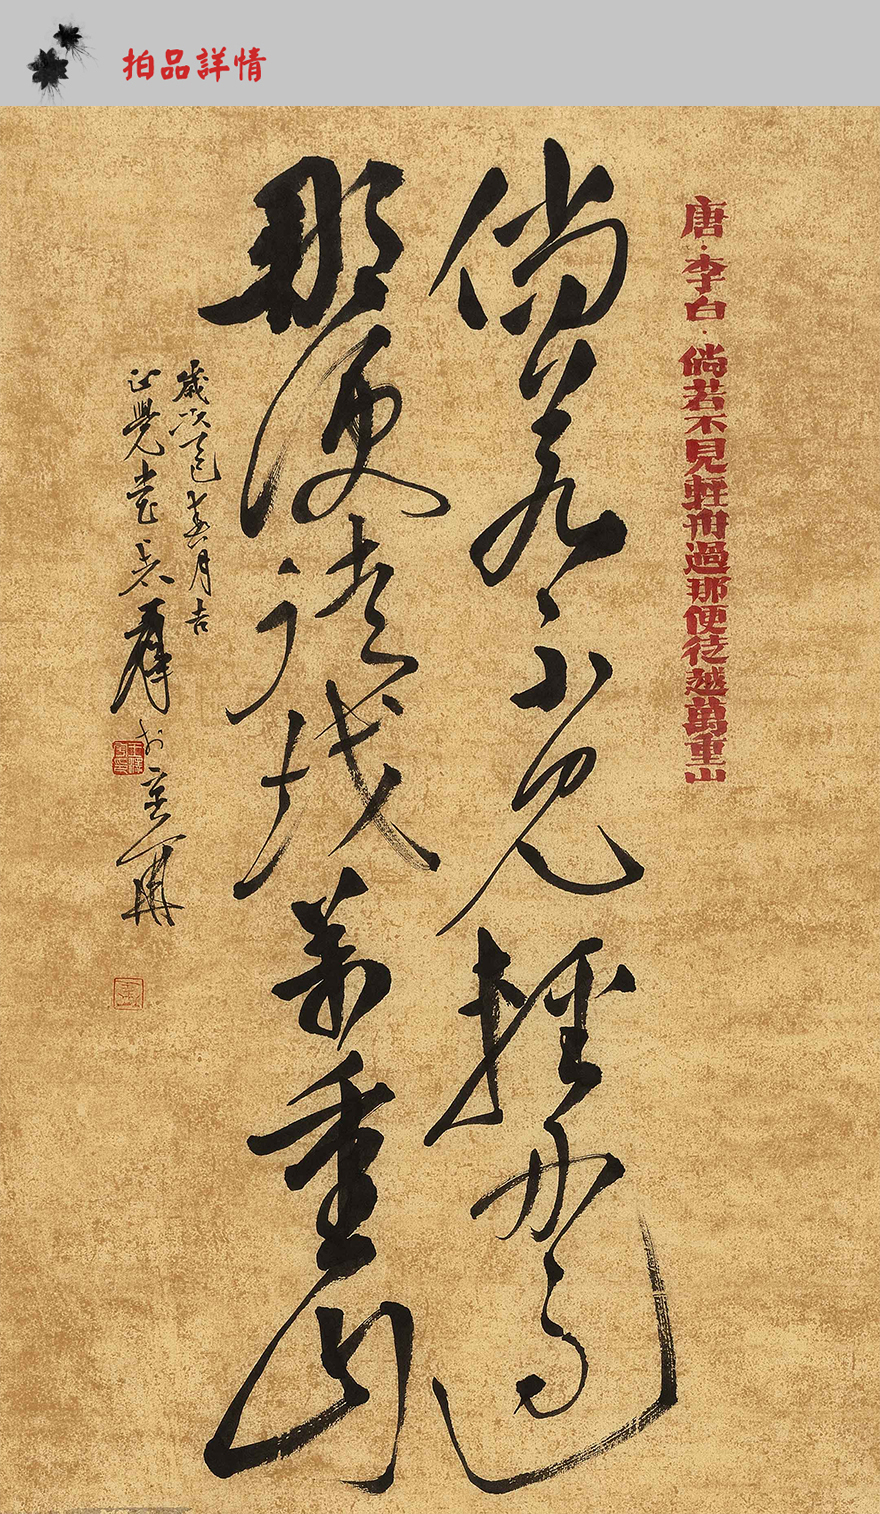 拍品詳情
唐·李白·倘若不見輕舟過那便徒越萬重山
倘若不見輕舟過
那便徒越萬重山
歲次丁巳 月吉
正覺堂 於